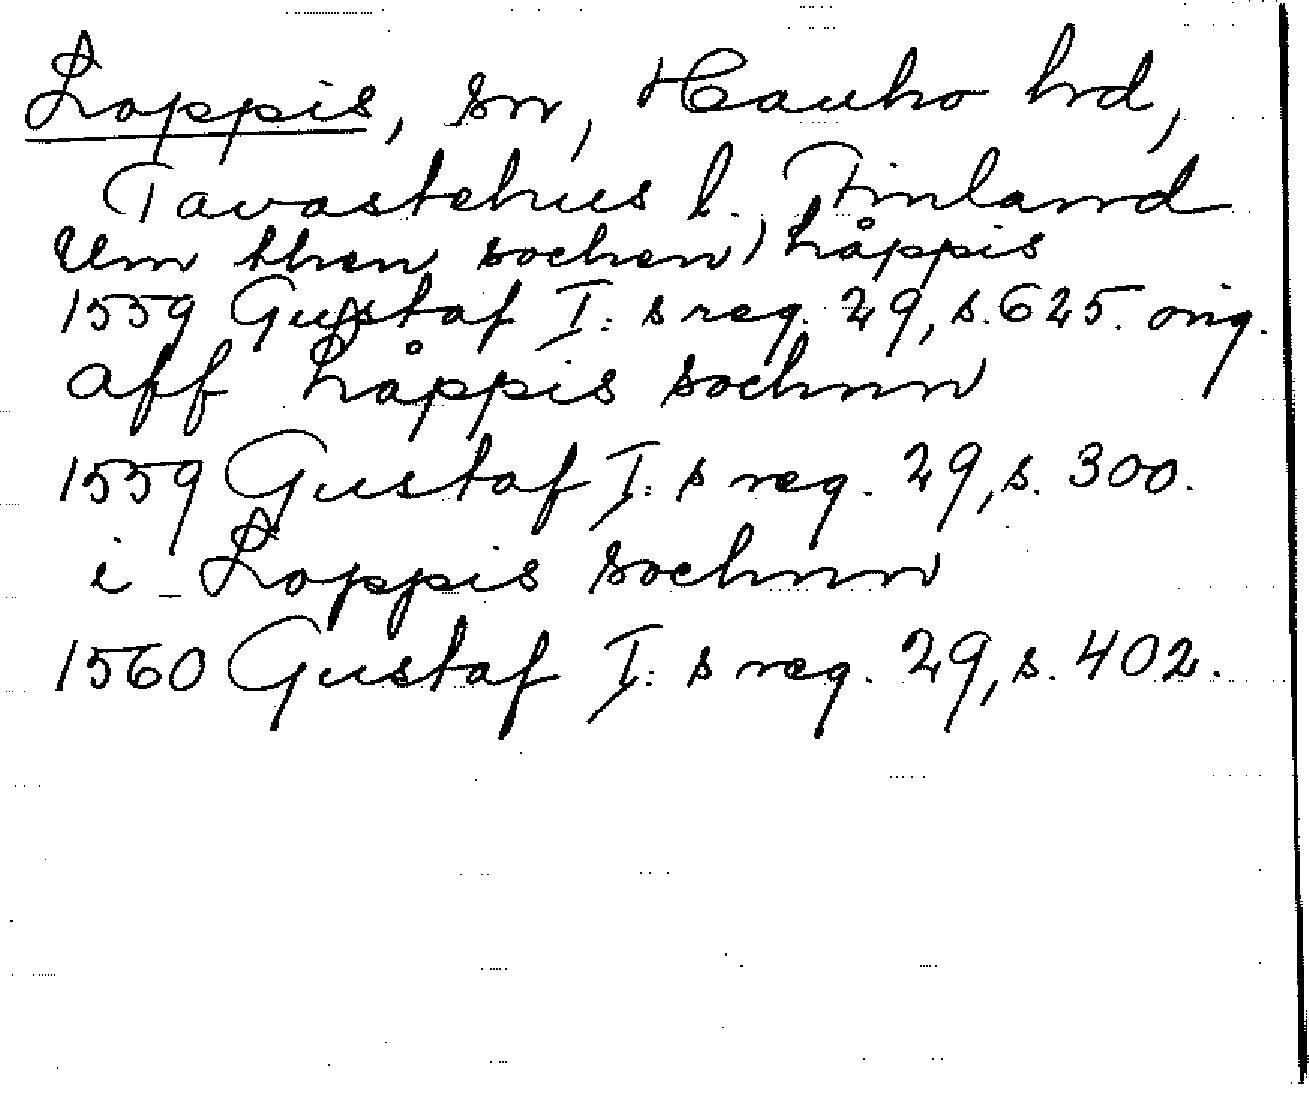 Loppis, sn, Hauho hrd,
Tavastehus l. Finland
Um then sochen) Låppis
1559 Gustaf I:s reg. 29, s. 625. orig.
aff Låppis sochnn
1559 Gustaf I:s reg. 29, s. 300.
i Loppis sochnnn
1560 Gustaf I:s reg. 29, s. 402.